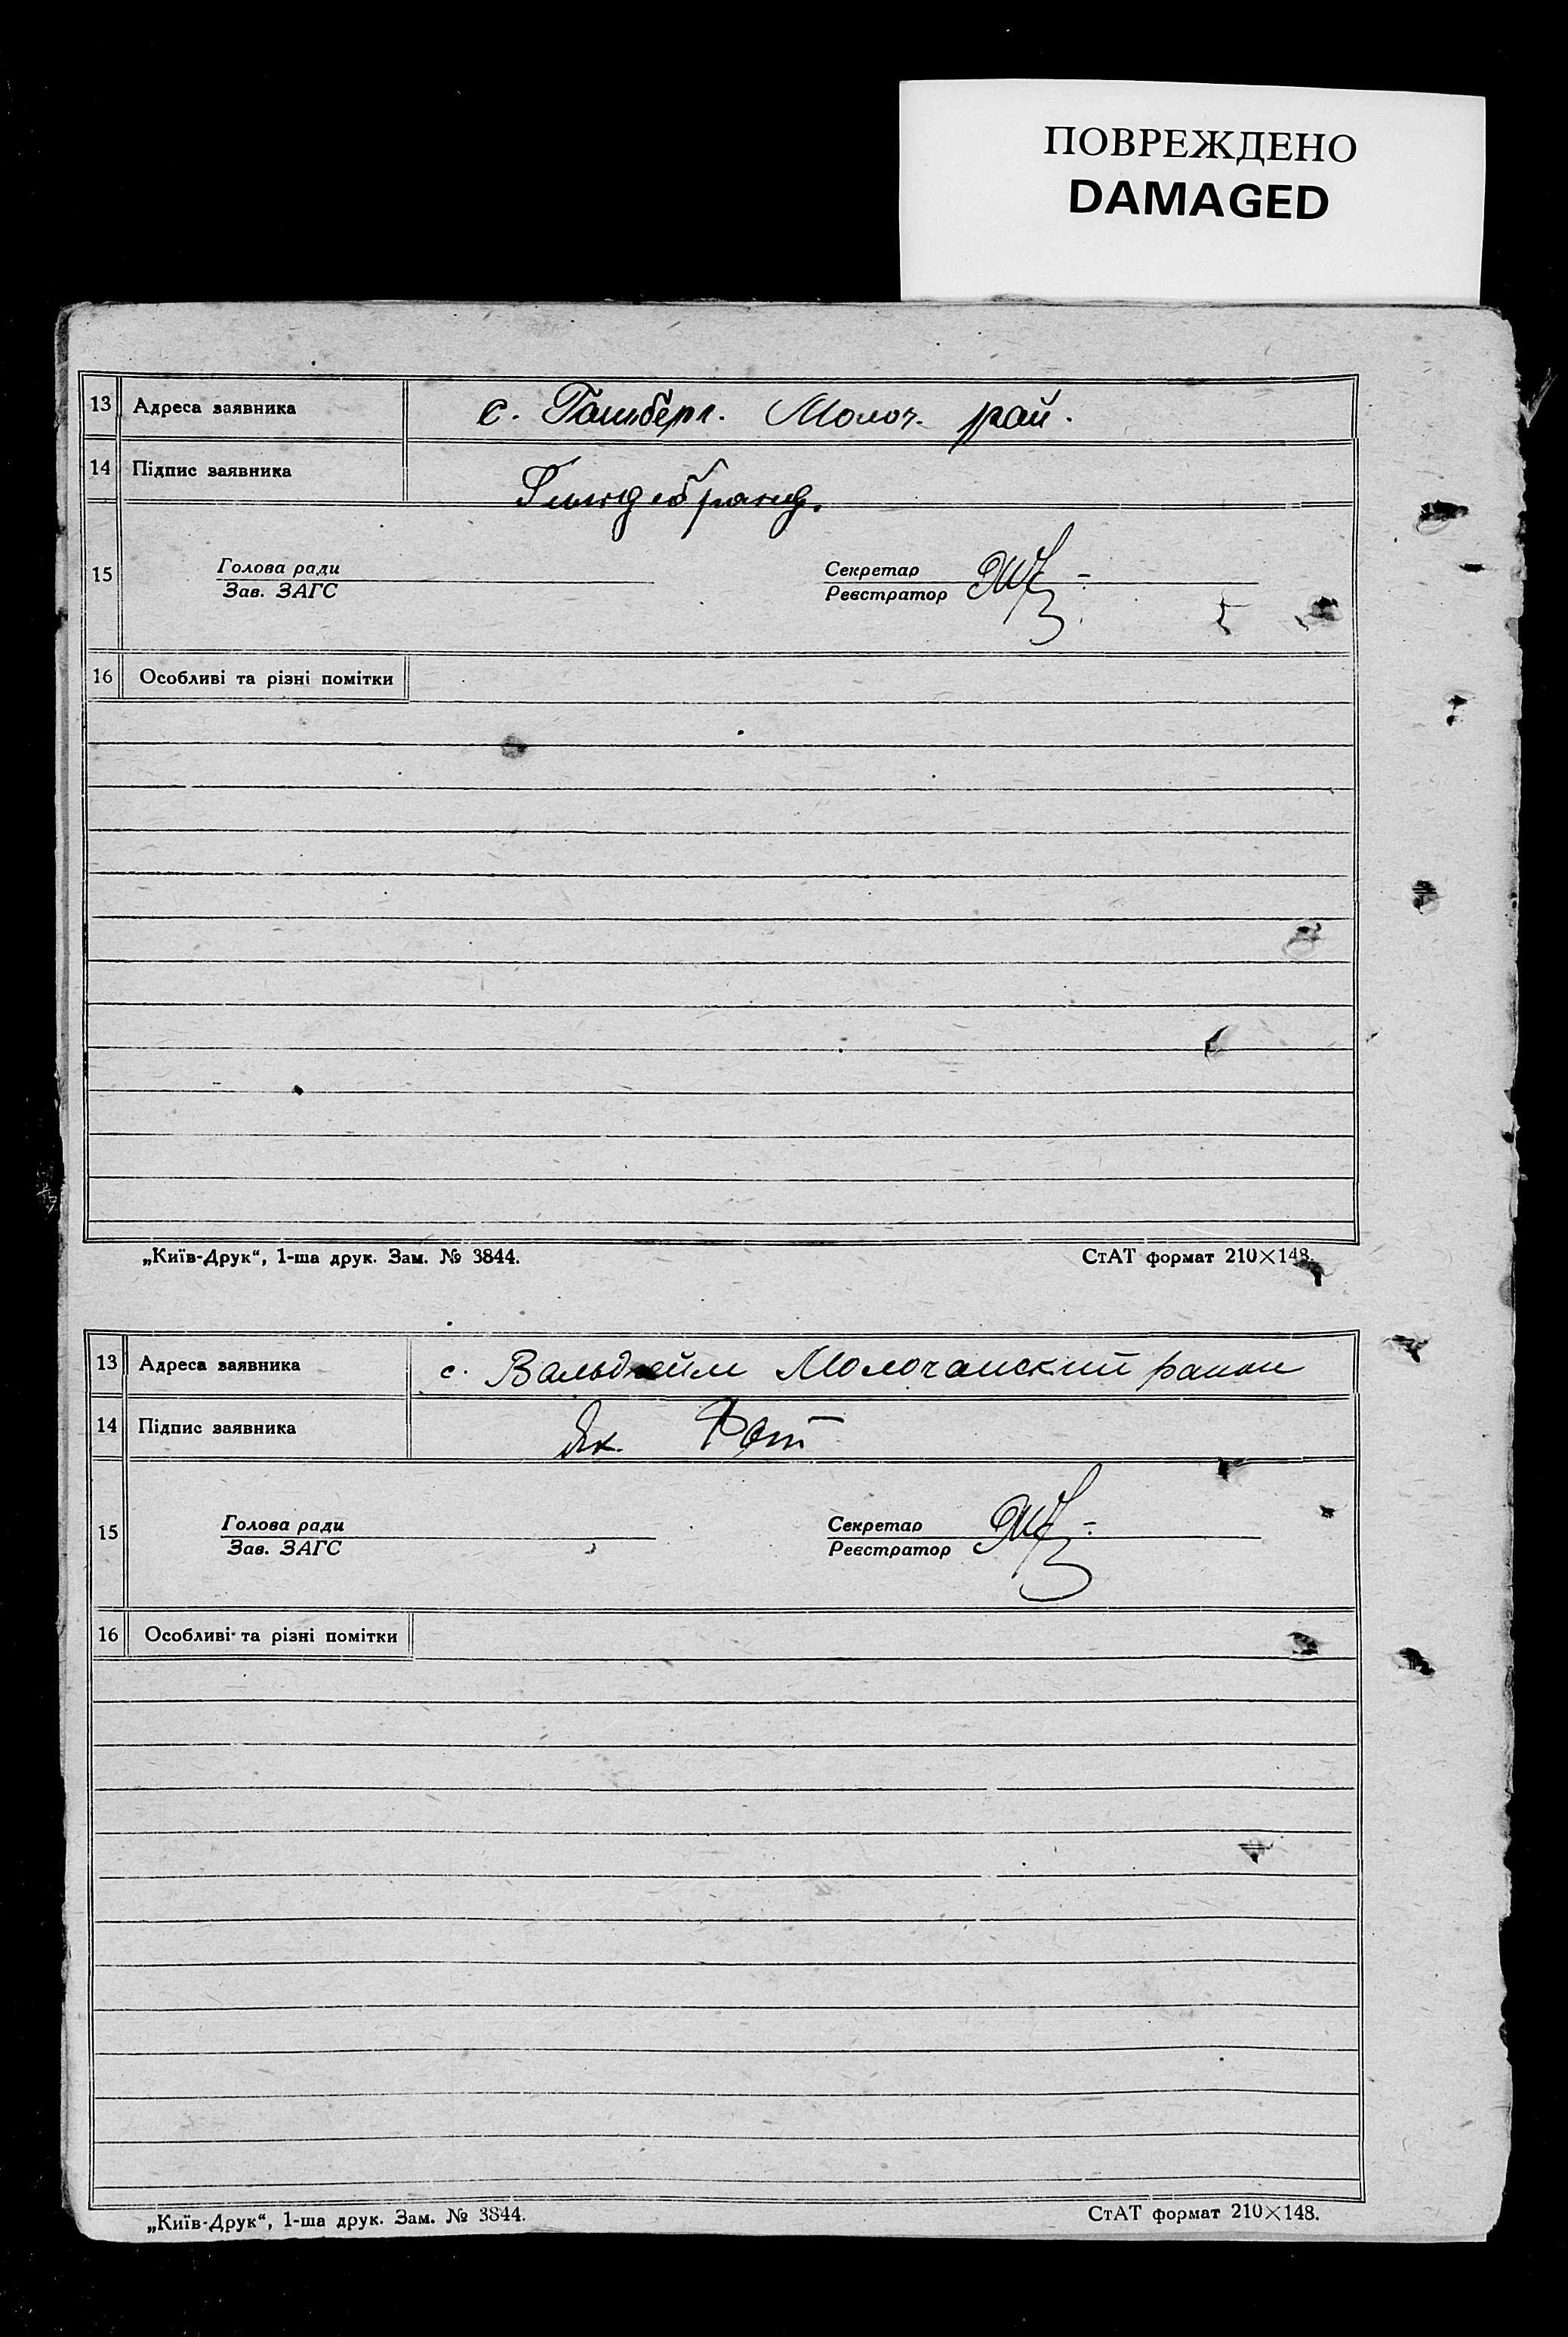 ПОВРЕЖДЕНО
DAMAGED
13 Адреса заявника с. Гамберг. Молоч. рай.
14 Підпис заявника Гильдебранд.
15 Голова ради Секретар
Зав. ЗАГС Реєстратор
16 Особливі та різні помітки
„Київ-Друк“, 1-ша друк. Зам. № 3844. СтАТ формат 210×148.
13 Адреса заявника с. Вальдгейм Молочанский район
14 Підпис заявника Як. Фот
15 Голова ради Секретар
Зав. ЗАГС Реєстратор
16 Особливі та різні помітки
„Київ-Друк“, 1-ша друк. Зам. № 3844. СтАТ формат 210×148.